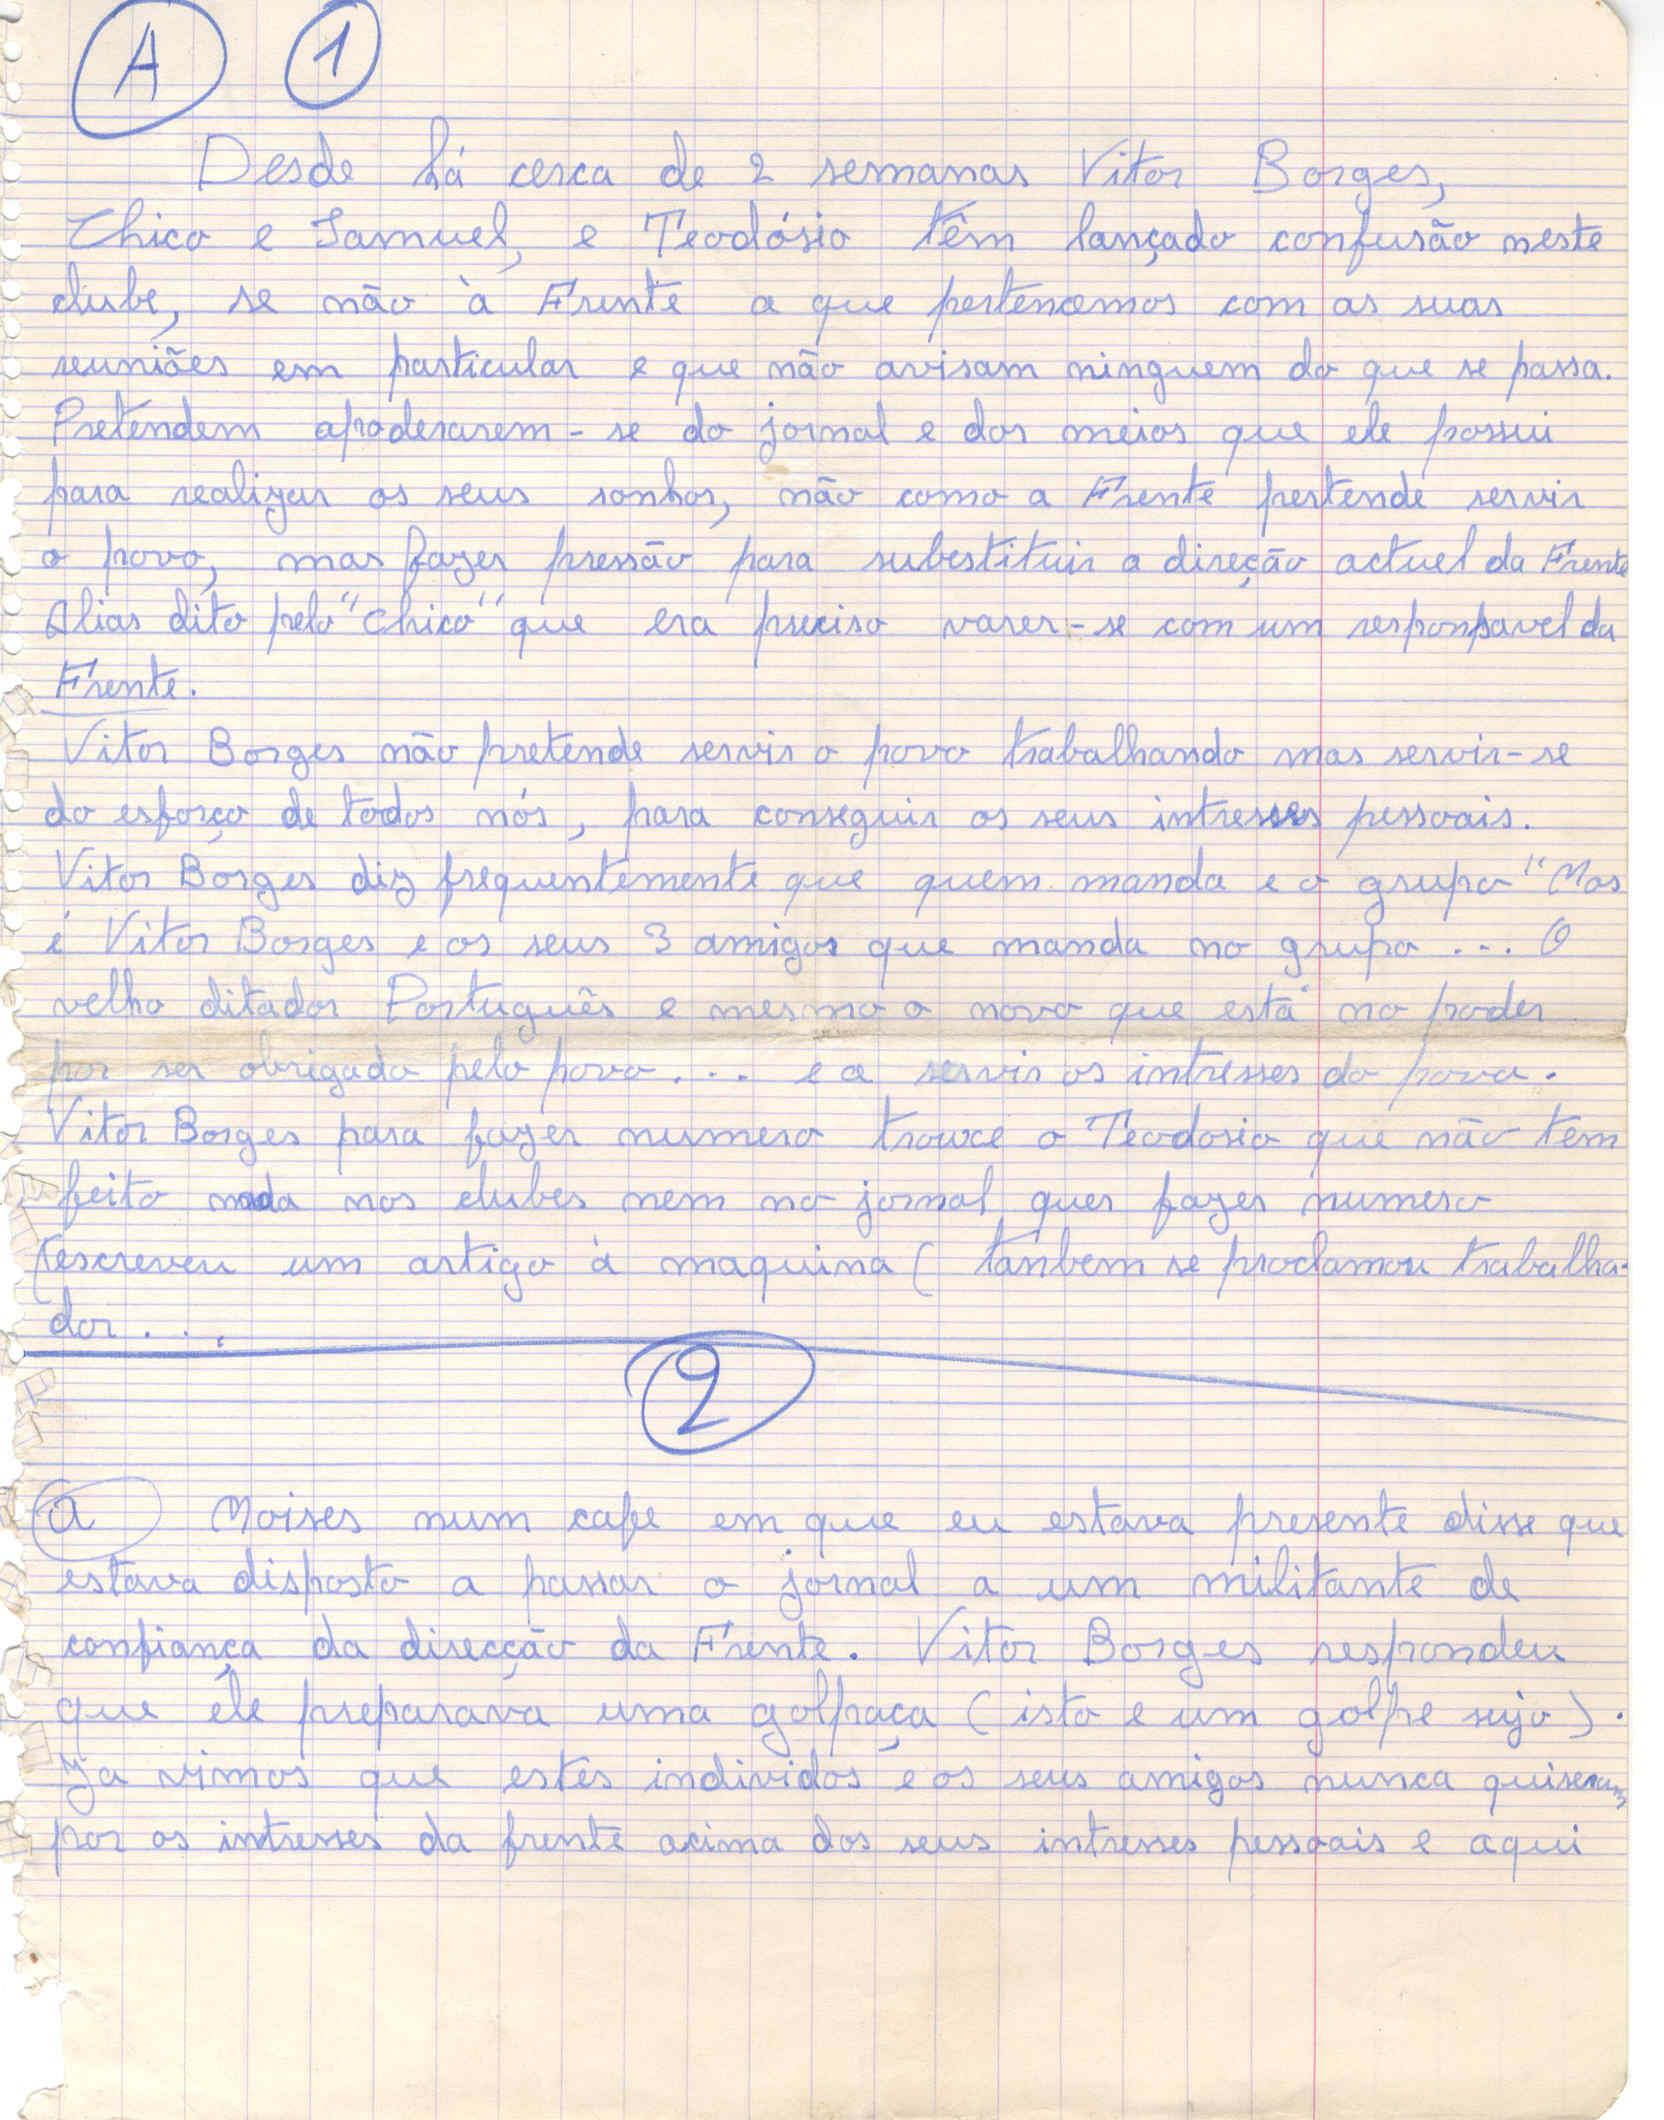 A 1
Desde há cerca de 2 semanas Vitor Borges,
Chico e Samuel, e Teodósio têm lançado confusão neste
clube, se não à Frente a que pertencemos com as suas
reuniões em particular e que não avisam ninguem do que se passa.
Pretendem apoderarem-se do jornal e dos meios que ele possui
para realizar os seus sonhos, não como a Frente pertende servir
o povo, mas fazer pressão para subestituir a direção actuel da Frente
Alias dito pelo "chico" que era preciso varer-se com um responsavel da
Frente.
Vitor Borges não pretende servir o povo trabalhando mas servir-se
do esforço de todos nós, para conseguir os seus intresses pessoais.
Vitor Borges diz frequentemente que quem manda e o grupo "Mas
é Vitor Borges e os seus 3 amigos que manda no grupo ... O
velho ditador Português e mesmo o novo que está no poder
por ser obrigado pelo povo ... e a servir os intresses do povo.
Vitor Borges para fazer numero trouxe o Teodosio que não tem
feito nada nos clubes nem no jornal quer fazer numero
(escreveu um artigo à maquina ( tanbem se proclamou trabalha-
dor . . .
2
a Moises num cafe em que eu estava presente disse que
estava disposto a passar o jornal a um militante de
confiança da direcção da Frente. Vitor Borges respondeu
que ele preparava uma golpaça (isto e um golpe sujo).
Ja vimos que estes individos e os seus amigos nunca quiseram
por os intresses da frente acima dos seus intresses pessoais e aqui